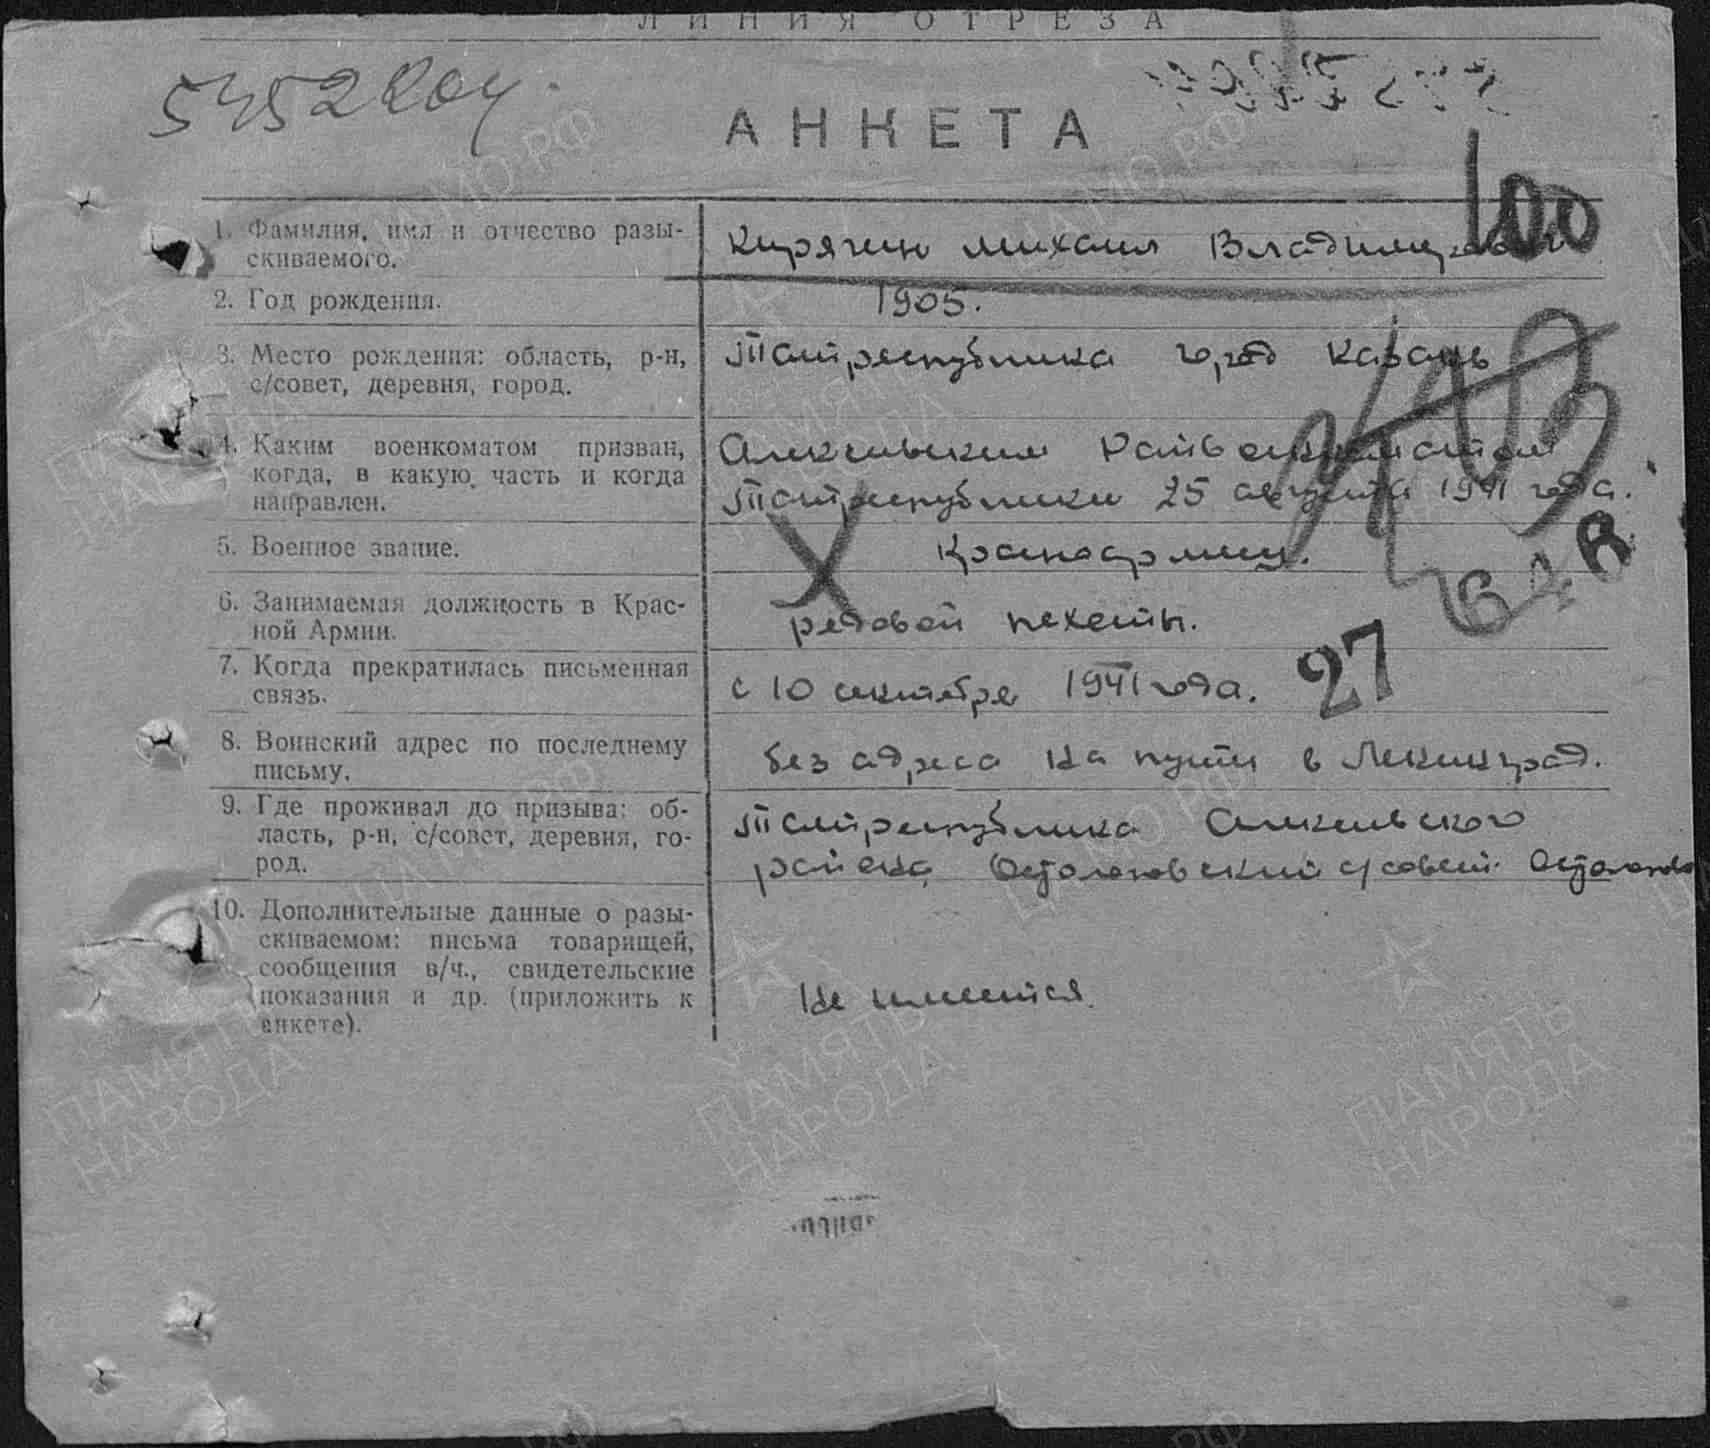 ЛИНИЯ ОТРЕЗА
АНКЕТА
100
1. Фамилия, имя и отчество разы-
скиваемого.
Кирягин Михаил Владимирович
2. Год рождения.
1905.
3. Место рождения: область, р-н,
с/совет, деревня, город.
Татреспублика город Казань
4. Каким военкоматом призван,
когда, в какую часть и когда
направлен.
Алькеевским Райвоенкоматом
Татреспублики 25 августа 1941 года.
5. Военное звание.
Красноармеец.
6. Занимаемая должность в Крас-
ной Армии.
рядовой пехоты.
7. Когда прекратилась письменная
связь.
с 10 сентября 1941 года.
27
8. Воинский адрес по последнему
письму.
без адреса на пути в Ленинград.
9. Где проживал до призыва: об-
ласть, р-н, с/совет, деревня, го-
род.
Татреспублика Алькеевского
района с/совет
10. Дополнительные данные о разы-
скиваемом: письма товарищей,
сообщения в/ч., свидетельские
показания и др. (приложить к
анкете).
Не имеется.
ПАМЯТЬ
НАРОДА
ПАМЯТЬ
НАРОДА
ПАМЯТЬ
НАРОДА